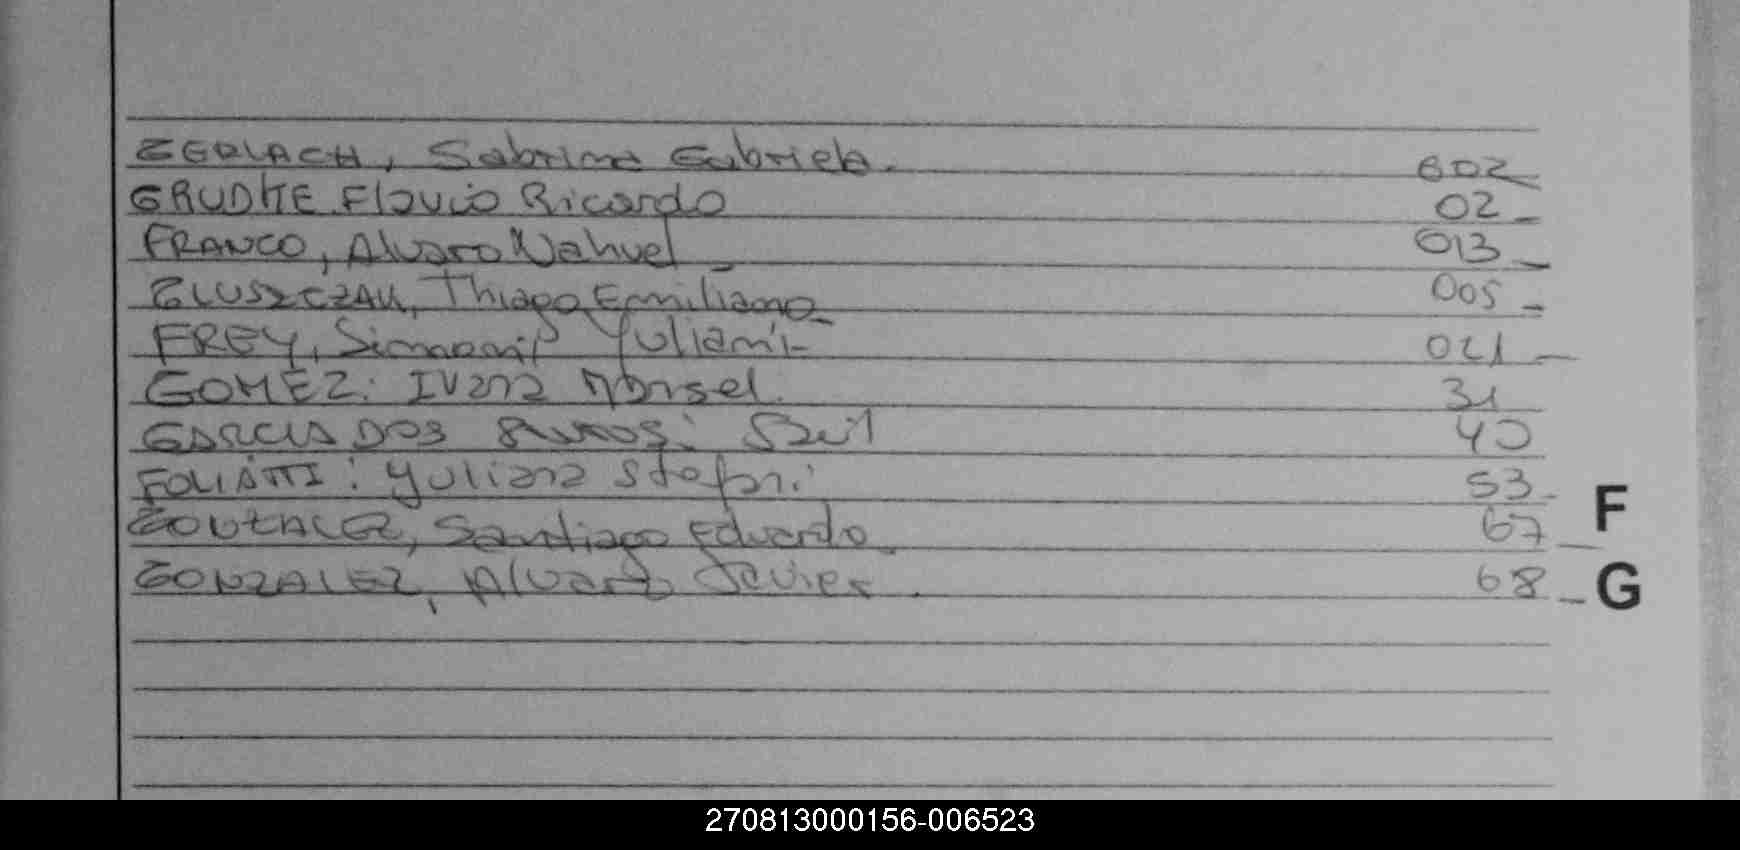 GERLACH, Sabrina Gabriela. 002
GRUDKE Flavio Ricardo 02
FRANCO, Alvaro Nahuel 013
GLUSZCZAK, Thiago Emiliano 005
FREY, Yuliani 021
GOMEZ: Ivana Marisel. 31
GARCIA DOS SANTOS: Saul 40
FOLIATTI: Yuliana Stefani 53
F
GONZALEZ, Santiago Eduardo. 67
GONZALEZ, Alvaro Javier. 68
G
270813000156-006523